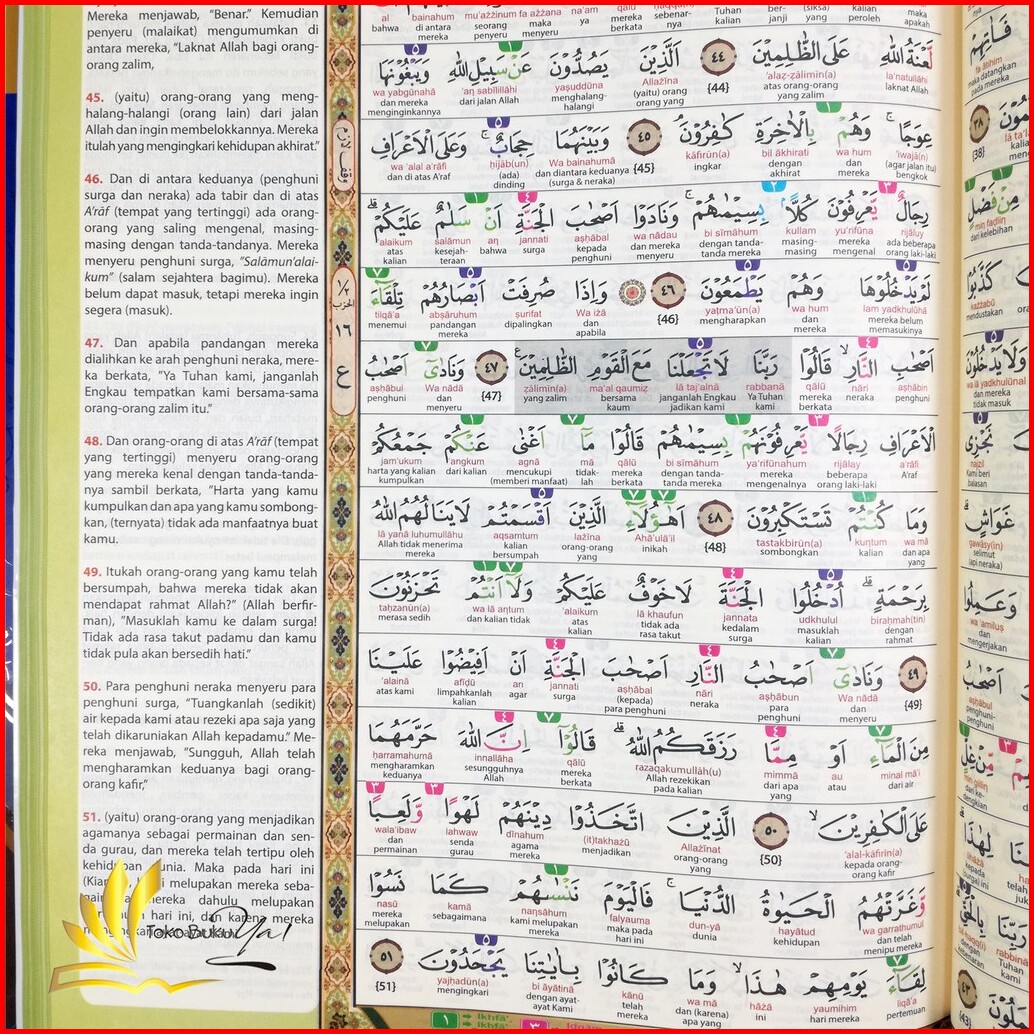 Mereka menjawab, “Benar.” Kemudian
penyeru (malaikat) mengumumkan di
antara mereka, “Laknat Allah bagi orang-
orang zalim,
45. (yaitu) orang-orang yang meng-
halang-halangi (orang lain) dari jalan
Allah dan ingin membelokkannya. Mereka
itulah yang mengingkari kehidupan akhirat.”
46. Dan di antara keduanya (penghuni
surga dan neraka) ada tabir dan di atas
A‘rāf (tempat yang tertinggi) ada orang-
orang yang saling mengenal, masing-
masing dengan tanda-tandanya. Mereka
menyeru penghuni surga, “Salāmun‘alai-
kum” (salam sejahtera bagimu). Mereka
belum dapat masuk, tetapi mereka ingin
segera (masuk).
47. Dan apabila pandangan mereka
dialihkan ke arah penghuni neraka, mere-
ka berkata, “Ya Tuhan kami, janganlah
Engkau tempatkan kami bersama-sama
orang-orang zalim itu.”
48. Dan orang-orang di atas A‘rāf (tempat
yang tertinggi) menyeru orang-orang
yang mereka kenal dengan tanda-tanda-
nya sambil berkata, “Harta yang kamu
kumpulkan dan apa yang kamu sombong-
kan, (ternyata) tidak ada manfaatnya buat
kamu.
49. Itukah orang-orang yang kamu telah
bersumpah, bahwa mereka tidak akan
mendapat rahmat Allah?” (Allah berfir-
man), “Masuklah kamu ke dalam surga!
Tidak ada rasa takut padamu dan kamu
tidak pula akan bersedih hati.”
50. Para penghuni neraka menyeru para
penghuni surga, “Tuangkanlah (sedikit)
air kepada kami atau rezeki apa saja yang
telah dikaruniakan Allah kepadamu.” Me-
reka menjawab, “Sungguh, Allah telah
mengharamkan keduanya bagi orang-
orang kafir,”
51. (yaitu) orang-orang yang menjadikan
agamanya sebagai permainan dan sen-
da gurau, dan mereka telah tertipu oleh
kehidupan dunia. Maka pada hari ini
melupakan mereka seba-
mereka dahulu melupakan
hari ini, dan karena mereka
Toko Buku
لَّعْنَةُ اللّٰهِ عَلَى الظّٰلِمِيْنَ ٤٤ الَّذِيْنَ يَصُدُّوْنَ عَنْ سَبِيْلِ اللّٰهِ وَيَبْغُوْنَهَا
la‘natullāhi ‘alaẓ-ẓālimīn(a) {44} Allażīna yaṣuddūna ‘an sabīlillāhi wa yabgūnahā
laknat Allah atas orang-orang yang zalim (yaitu) orang orang yang menghalang-halangi dari jalan Allah dan mereka menginginkannya
عِوَجًا وَهُمْ بِالْاٰخِرَةِ كٰفِرُوْنَ ٤٥ وَبَيْنَهُمَا حِجَابٌ وَعَلَى الْاَعْرَافِ
‘iwajā(n) wa hum bil ākhirati kāfirūn(a) {45} Wa bainahumā ḥijāb(un) wa ‘alal a‘rāfi
(agar jalan itu) bengkok dan mereka dengan akhirat ingkar dan diantara keduanya (surga & neraka) (ada) dinding dan di atas A‘raf
رِجَالٌ يَّعْرِفُوْنَ كُلًّا بِسِيْمٰىهُمْ وَنَادَوْا اَصْحٰبَ الْجَنَّةِ اَنْ سَلٰمٌ عَلَيْكُمْ
rijāluy ya‘rifūna kullam bi sīmāhum wa nādau aṣḥābal jannati an salāmun ‘alaikum
ada beberapa orang laki-laki mereka mengenal masing-masing dengan tanda-tanda mereka dan mereka menyeru kepada penghuni surga bahwa kesejahteraan atas kalian
لَمْ يَدْخُلُوْهَا وَهُمْ يَطْمَعُوْنَ ٤٦ وَاِذَا صُرِفَتْ اَبْصَارُهُمْ تِلْقَاۤءَ
lam yadkhulūhā wa hum yaṭma‘ūn(a) {46} Wa iżā ṣurifat abṣāruhum tilqā'a
mereka belum memasukinya dan mereka mengharapkan dan apabila dipalingkan pandangan mereka menemui
اَصْحٰبِ النَّارِ قَالُوْا رَبَّنَا لَا تَجْعَلْنَا مَعَ الْقَوْمِ الظّٰلِمِيْنَ ٤٧ وَنَادٰٓى اَصْحٰبُ
aṣḥābin nāri qālū rabbanā lā taj‘alnā ma‘al qaumiẓ ẓālimīn(a) {47} Wa nādā aṣḥābul
penghuni neraka mereka berkata Ya Tuhan kami janganlah Engkau jadikan kami bersama kaum yang zalim dan menyeru penghuni
الْاَعْرَافِ رِجَالًا يَّعْرِفُوْنَهُمْ بِسِيْمٰىهُمْ قَالُوْا مَآ اَغْنٰى عَنْكُمْ جَمْعُكُمْ
a‘rāfi rijālay ya‘rifūnahum bi sīmāhum qālū mā agnā ‘angkum jam‘ukum
A‘raf beberapa orang laki-laki mereka mengenalnya dengan tanda-tanda mereka mereka berkata tidak-lah mencukupi (memberi manfaat) dari kalian harta yang kalian kumpulkan
وَمَا كُنْتُمْ تَسْتَكْبِرُوْنَ ٤٨ اَهٰٓؤُلَاۤءِ الَّذِيْنَ اَقْسَمْتُمْ لَا يَنَالُهُمُ اللّٰهُ
wa mā kuntum tastakbirūn(a) {48} Ahā'ulā'il lażīna aqsamtum lā yanā luhumullāhu
dan apa yang kalian sombongkan inikah orang-orang yang kalian bersumpah Allah tidak menerima mereka
بِرَحْمَةٍ اُدْخُلُوا الْجَنَّةَ لَا خَوْفٌ عَلَيْكُمْ وَلَآ اَنْتُمْ تَحْزَنُوْنَ
biraḥmah(tin) udkhulul jannata lā khaufun ‘alaikum wa lā antum taḥzanūn(a)
dengan rahmat masuklah kalian kedalam surga tidak ada rasa takut atas kalian dan kalian tidak merasa sedih
٤٩ وَنَادٰٓى اَصْحٰبُ النَّارِ اَصْحٰبَ الْجَنَّةِ اَنْ اَفِيْضُوْا عَلَيْنَا
{49} Wa nādā aṣḥābun nāri aṣḥābal jannati an afīḍū ‘alainā
dan menyeru para penghuni neraka (kepada) para penghuni surga agar limpahkanlah atas kami
مِنَ الْمَاۤءِ اَوْ مِمَّا رَزَقَكُمُ اللّٰهُ قَالُوْٓا اِنَّ اللّٰهَ حَرَّمَهُمَا
minal mā'i au mimmā razaqakumullāh(u) qālū innallāha ḥarramahumā
dari air atau dari apa yang Allah rezekikan pada kalian mereka berkata sesungguhnya Allah mengharamkan keduanya
عَلَى الْكٰفِرِيْنَ ٥٠ الَّذِيْنَ اتَّخَذُوْا دِيْنَهُمْ لَهْوًا وَّلَعِبًا
‘alal-kāfirīn(a) {50} Allażīnat (it)takhażū dīnahum lahwaw wala‘ibaw
kepada orang-orang kafir orang-orang yang menjadikan agama mereka senda gurau dan permainan
وَّغَرَّتْهُمُ الْحَيٰوةُ الدُّنْيَا فَالْيَوْمَ نَنْسٰىهُمْ كَمَا نَسُوْا
wa garrathumul hayātud dun-yā falyauma nansāhum kamā nasū
dan telah menipu mereka kehidupan dunia maka pada hari ini kami melupakan mereka sebagaimana mereka melupakan
لِقَاۤءَ يَوْمِهِمْ هٰذَا وَمَا كَانُوْا بِاٰيٰتِنَا يَجْحَدُوْنَ ٥١
liqā'a yaumihim hāżā wa mā kānū bi āyātinā yajḥadūn(a) {51}
pertemuan hari mereka ini dan (karena) apa yang mereka telah dengan ayat-ayat Kami mengingkari